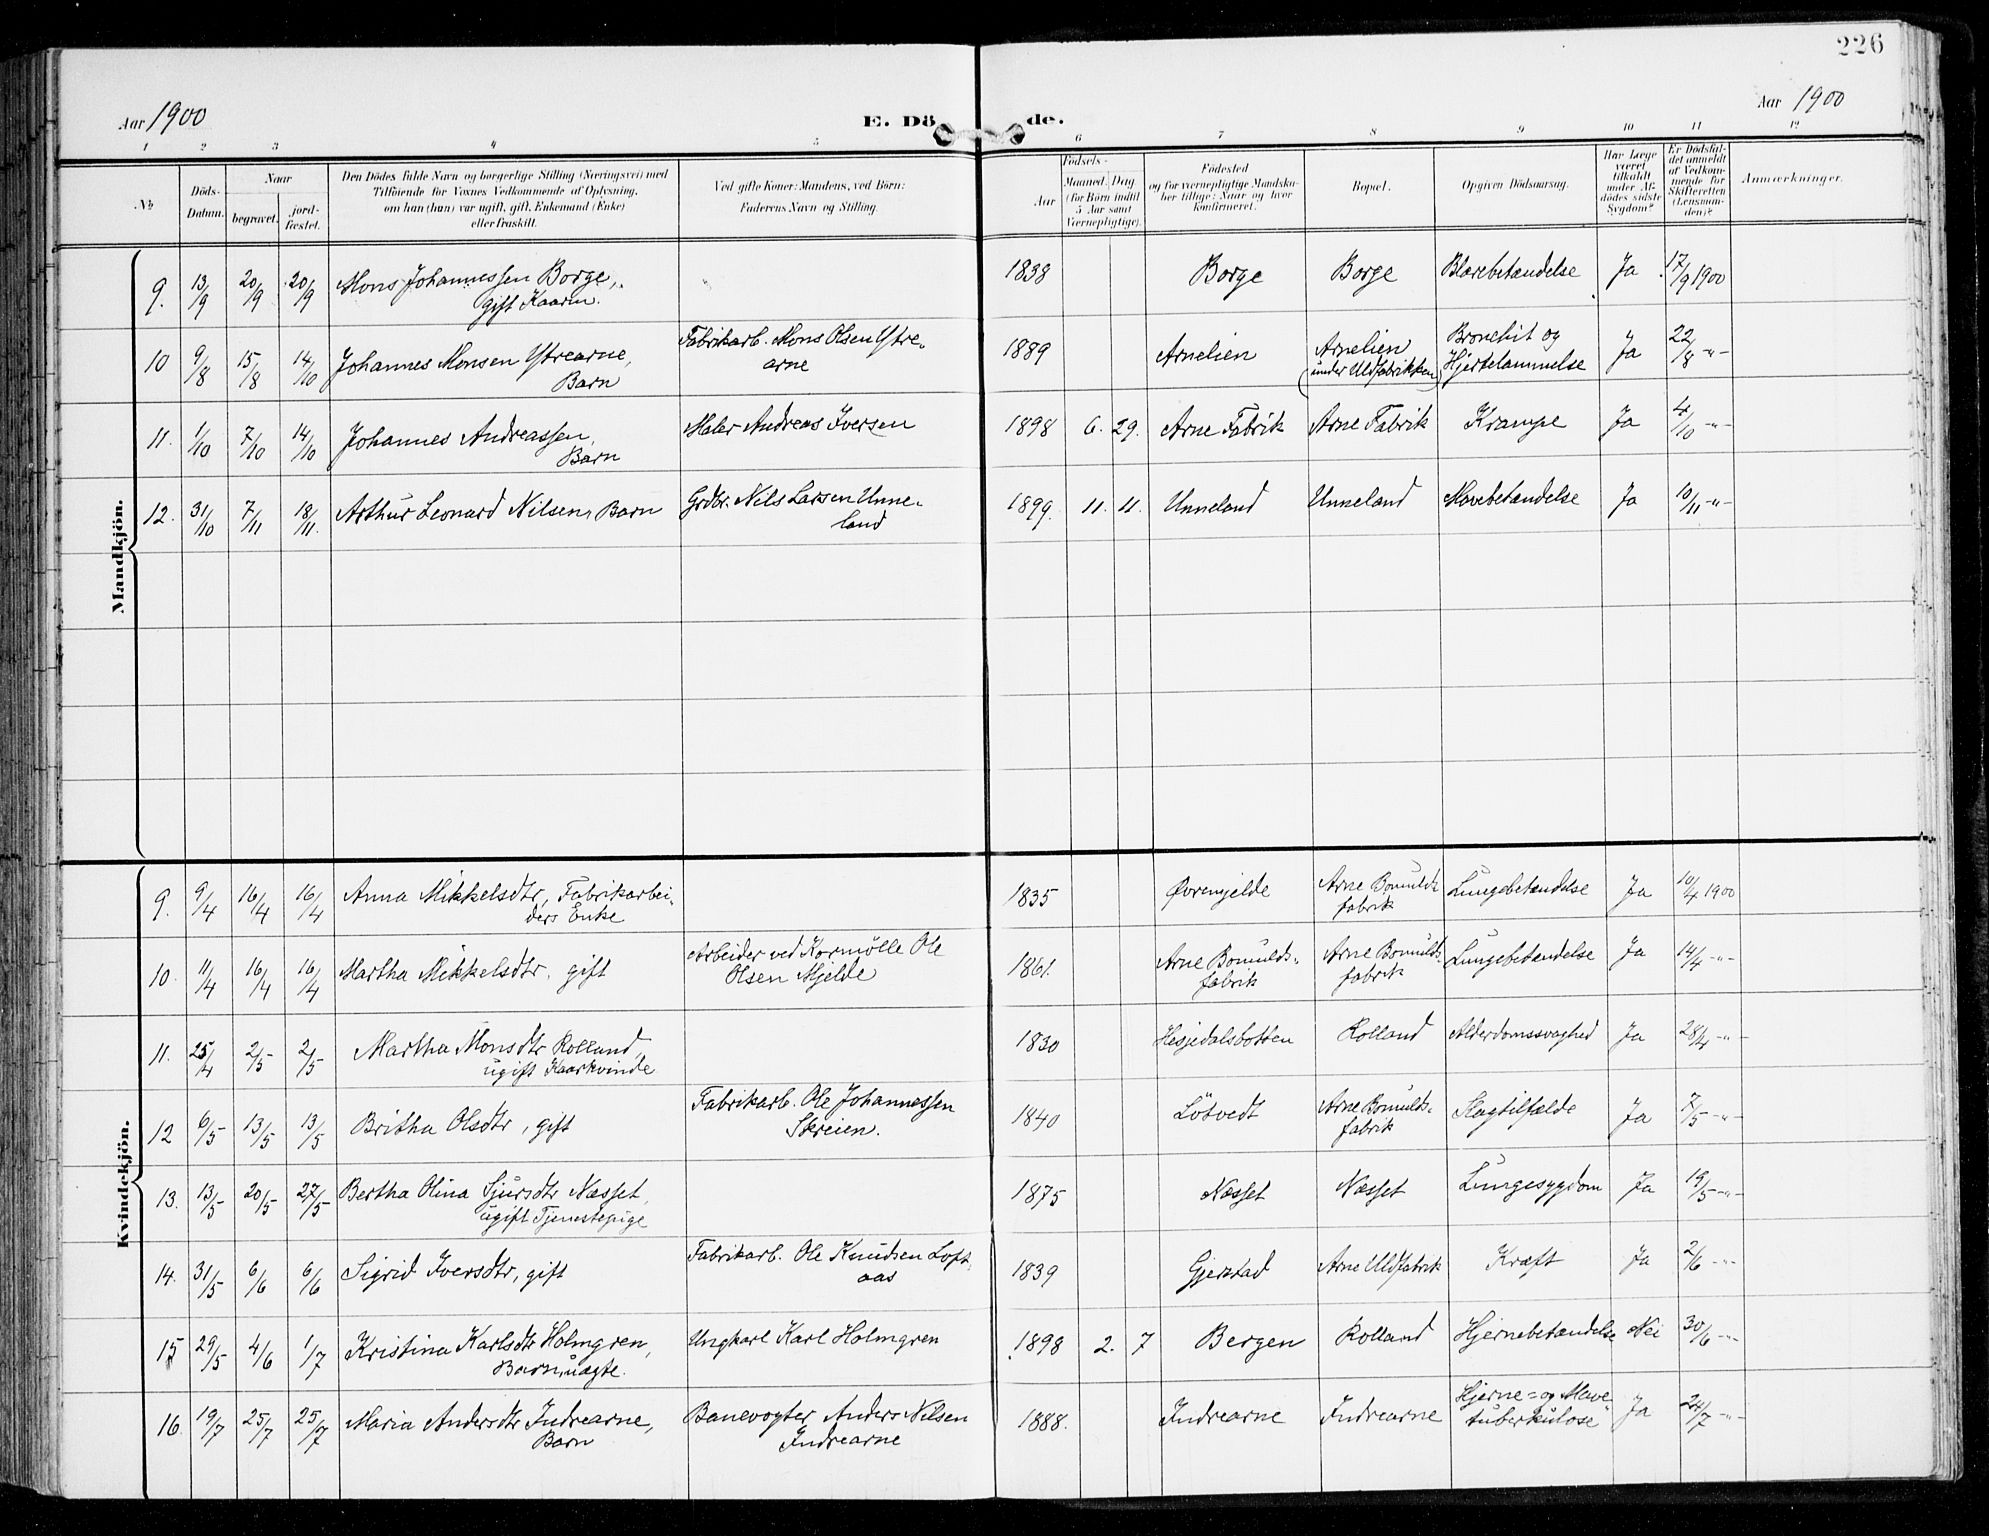 226
Aar 1900
E. Dö de.
Aar 1900
1 2 3 4 5 6 7 8 9 10 11 12
№
Döds-
Datum.
Naar
begravet.
jord-
fæstet.
Den Dödes fulde Navn og borgerlige Stilling (Næringsvei) med
Tilföiende for Voxnes Vedkommende af Oplysning,
om han (hun) var ugift, gift, Enkemand (Enke)
eller fraskilt.
Ved gifte Koner: Mandens, ved Börn:
Faderens Navn og Stilling.
Födsels-
Aar
Maaned. Dag
(for Börn indtil
5 Aar samt
Værnepligtige).
Födested
og for værnepligtige Mandskaber
tillige: Naar og hvor
konfirmeret.
Bopæl.
Opgiven Dödsaarsag.
Har Læge
været
tilkaldt
under Afdödes
sidste
Sygdom?
Er Dödsfaldet
anmeldt
af Vedkommende
for
Skifteretten
(Lensmanden)?
Anmærkninger.
Mandkjön.
9. 13/9 20/9 20/9 Mons Johannessen Borge, 1838 Borge Borge Blærebetændelse Ja 17/9 1900
gift Kaarm.
10 9/8 15/8 14/10 Johannes Monsen Ytrearne, Fabrikarb. Mons Olsen Ytre- 1889 Arnelien Arnelien Bronchit og Ja 22/8 -"-
Barn arne (under Uldfabrikken) Hjertelammelse
11. 1/10 7/10 14/10 Johannes Andreassen, Maler Andreas Iversen 1898 6. 29. Arne Fabrik Arne Fabrik Krampe Ja 4/10 -"-
Barn
12. 31/10 7/11 18/11. Arthur Leonard Nilsen, Barn Grdbr. Nils Larsen Unne- 1899. 11. 11. Unneland Unneland Mavebetændelse Ja 10/11 -"-
land
Kvindekjön.
9. 9/4 16/4 16/4 Anna Mikkelsdtr, Fabrikarbei- 1835 Øvremjelde Arne Bomulds- Lungebetændelse Ja 10/4 1900
ders Enke fabrik
10. 11/4 16/4 16/4 Martha Mikkelsdtr. gift Arbeider ved Kornmölle Ole 1861. Arne Bomulds- Arne Bomulds- Lungebetændelse Ja 14/4 -"-
Olsen Mjelde fabrik fabrik
11. 25/4 2/5 2/5 Martha Monsdtr Rolland, 1830 Hesjedalsbotten Rolland Alderdomssvaghed Ja 28/4 -"-
ugift Kaarkvinde
12 6/5 13/5 13/5 Britha Olsdtr, gift Fabrikarb. Ole Johannessen 1840 Lötvedt Arne Bomulds- Slagtilfælde Ja 7/5 -"-
Skreien. fabrik
13. 13/5 20/5 27/5 Bertha Olina Sjursdtr Næsset, 1875 Næsset Næsset Lungesygdom Ja 19/5 -"-
ugift Tjenestepige
14. 31/5 6/6 6/6 Sigrid Iversdtr, gift Fabrikarb. Ole Knudsen Loft- 1839 Gjerstad Arne Uldfabrik Kræft Ja 2/6 -"-
aas
15 29/5 4/6 1/7 Kristina Karlsdtr Holmgren, Ungkarl Karl Holmgren 1898 2. 7 Bergen Rolland Hjernebetændelse Nei 30/6 -"-
Barn, uægte.
16. 19/7 25/7 25/7 Maria Andersdtr Indrearne, Banevogter Anders Nilsen 1888. Indrearne Indrearne Hjerne- og Mave- Ja 24/7 -"-
Barn Indrearne tuberkulose